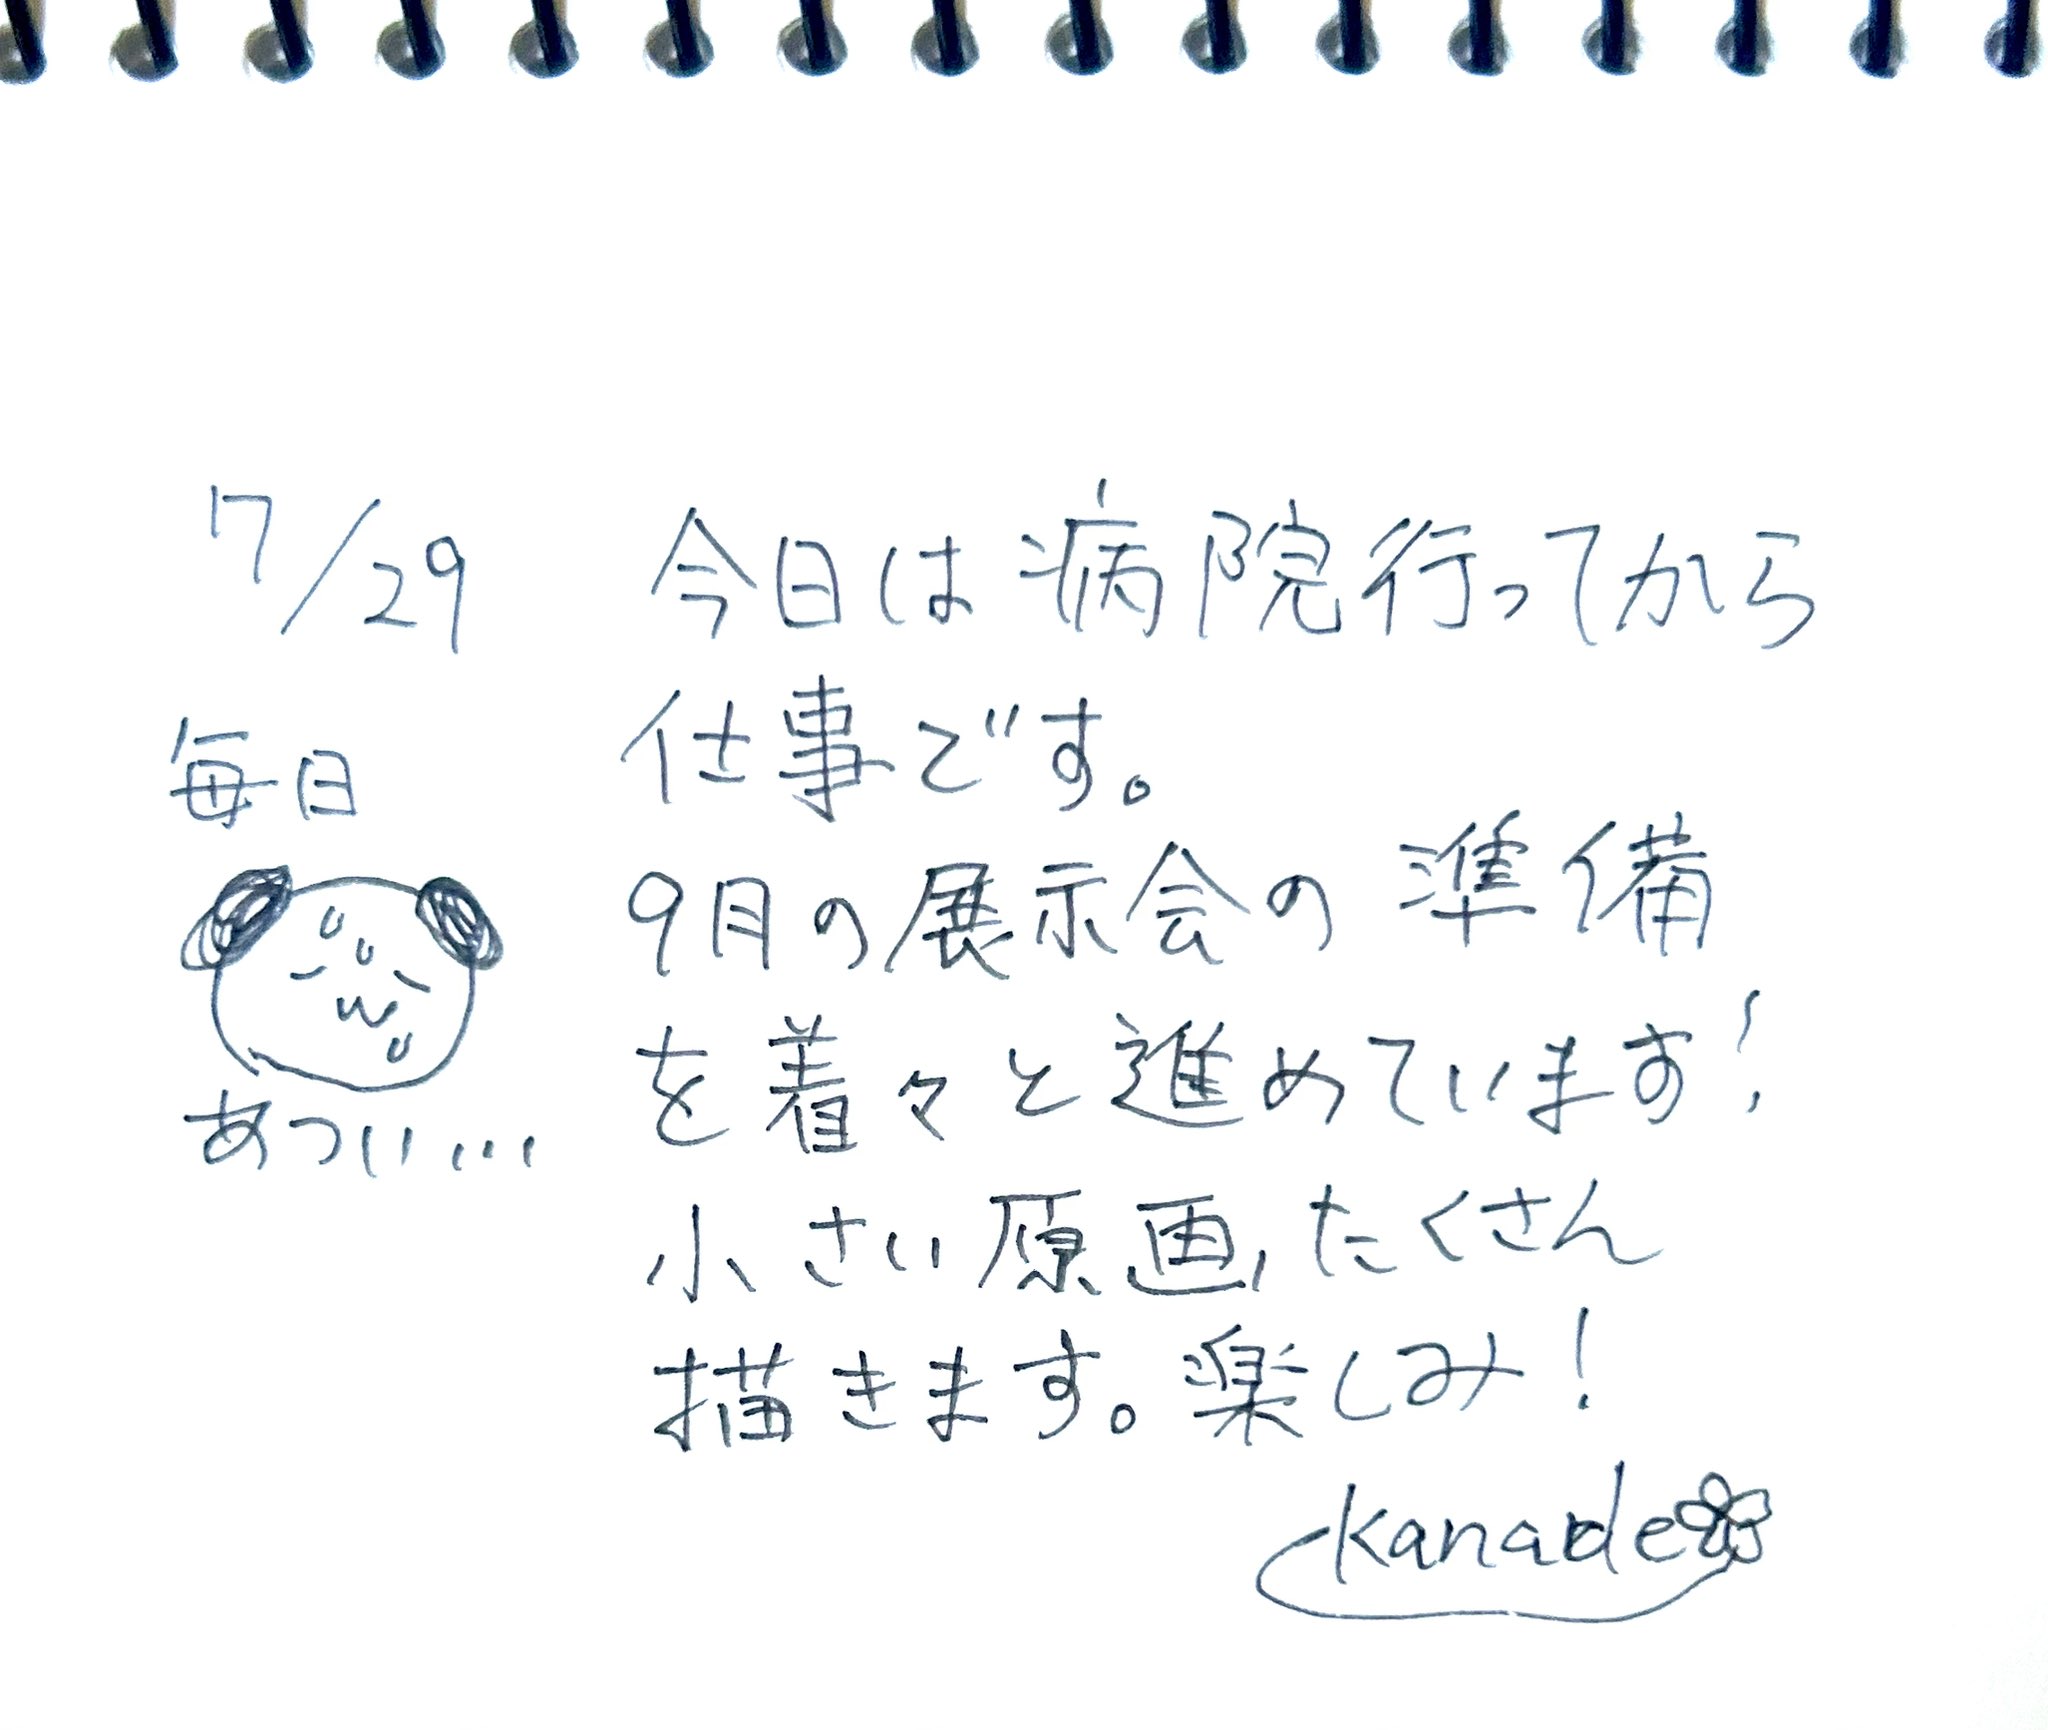 7/29
毎日
あつい…
今日は病院行ってから
仕事です。
9月の展示会の準備
を着々と進めています!
小さい原画、たくさん
描きます。楽しみ!
kanade